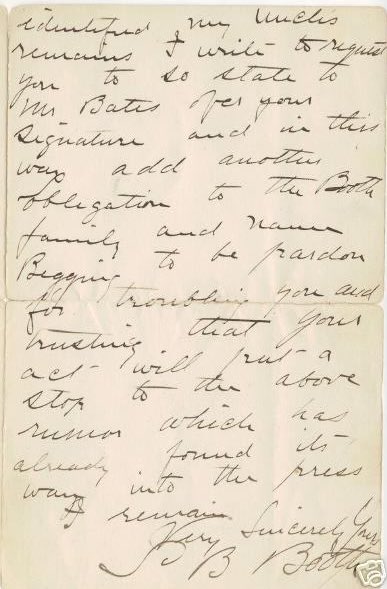 identified my Uncles
remains I write to request
you to so state to
Mr Bates over your
signature and in this
way add another
obligation to the Booth
family and name
Begging to be pardon
for troubling you and
trusting that your
act will put a
stop to the above
rumor which has
already found its
way into the press
I remain
Very Sincerely Yours
B Booth